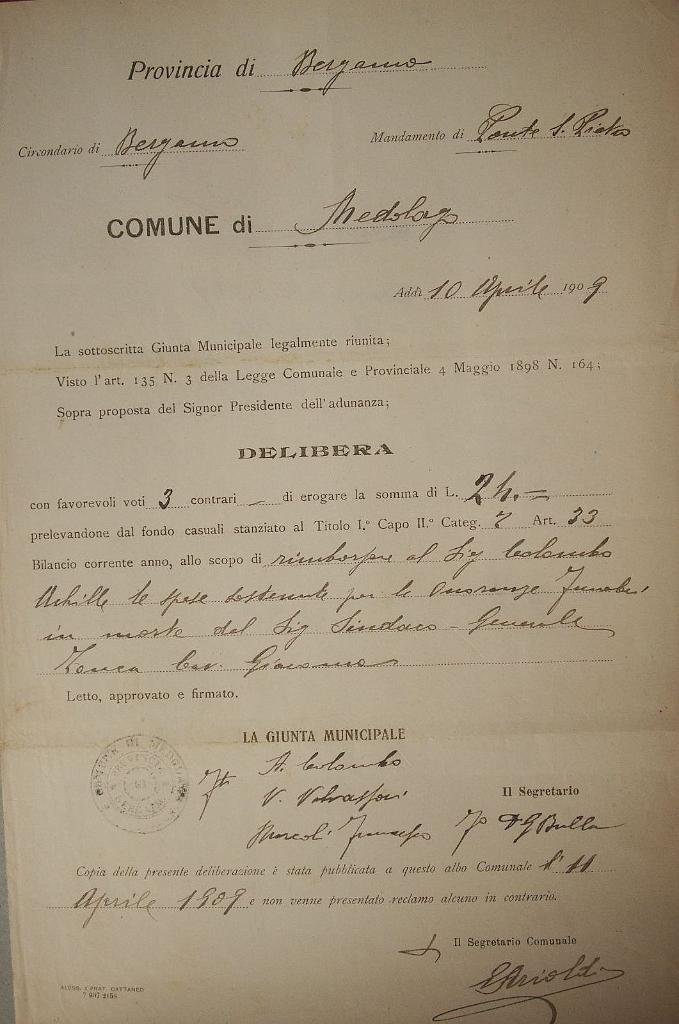 Provincia di Bergamo
Circondario di Bergamo Mandamento di Ponte S. Pietro
COMUNE di Medolago
Addì 10 Aprile 1909
La sottoscritta Giunta Municipale legalmente riunita;
Visto l'art. 135 N. 3 della Legge Comunale e Provinciale 4 Maggio 1898 N. 164;
Sopra proposta del Signor Presidente dell'adunanza;
DELIBERA
con favorevoli voti 3 contrari — di erogare la somma di L. 24.=
prelevandone dal fondo casuali stanziato al Titolo I.° Capo II.° Categ. 7 Art. 33
Bilancio corrente anno, allo scopo di rimborsare al Sig Colombo
Achille le spese sostenute per le Onoranze Funebri
in morte del Sig Sindaco - Generale
Zonca Cav. Giacomo
Letto, approvato e firmato.
LA GIUNTA MUNICIPALE
A. Colombo
V.
Il Segretario
Copia della presente deliberazione è stata pubblicata a questo albo Comunale li 11
Aprile 1909 e non venne presentato reclamo alcuno in contrario.
Il Segretario Comunale